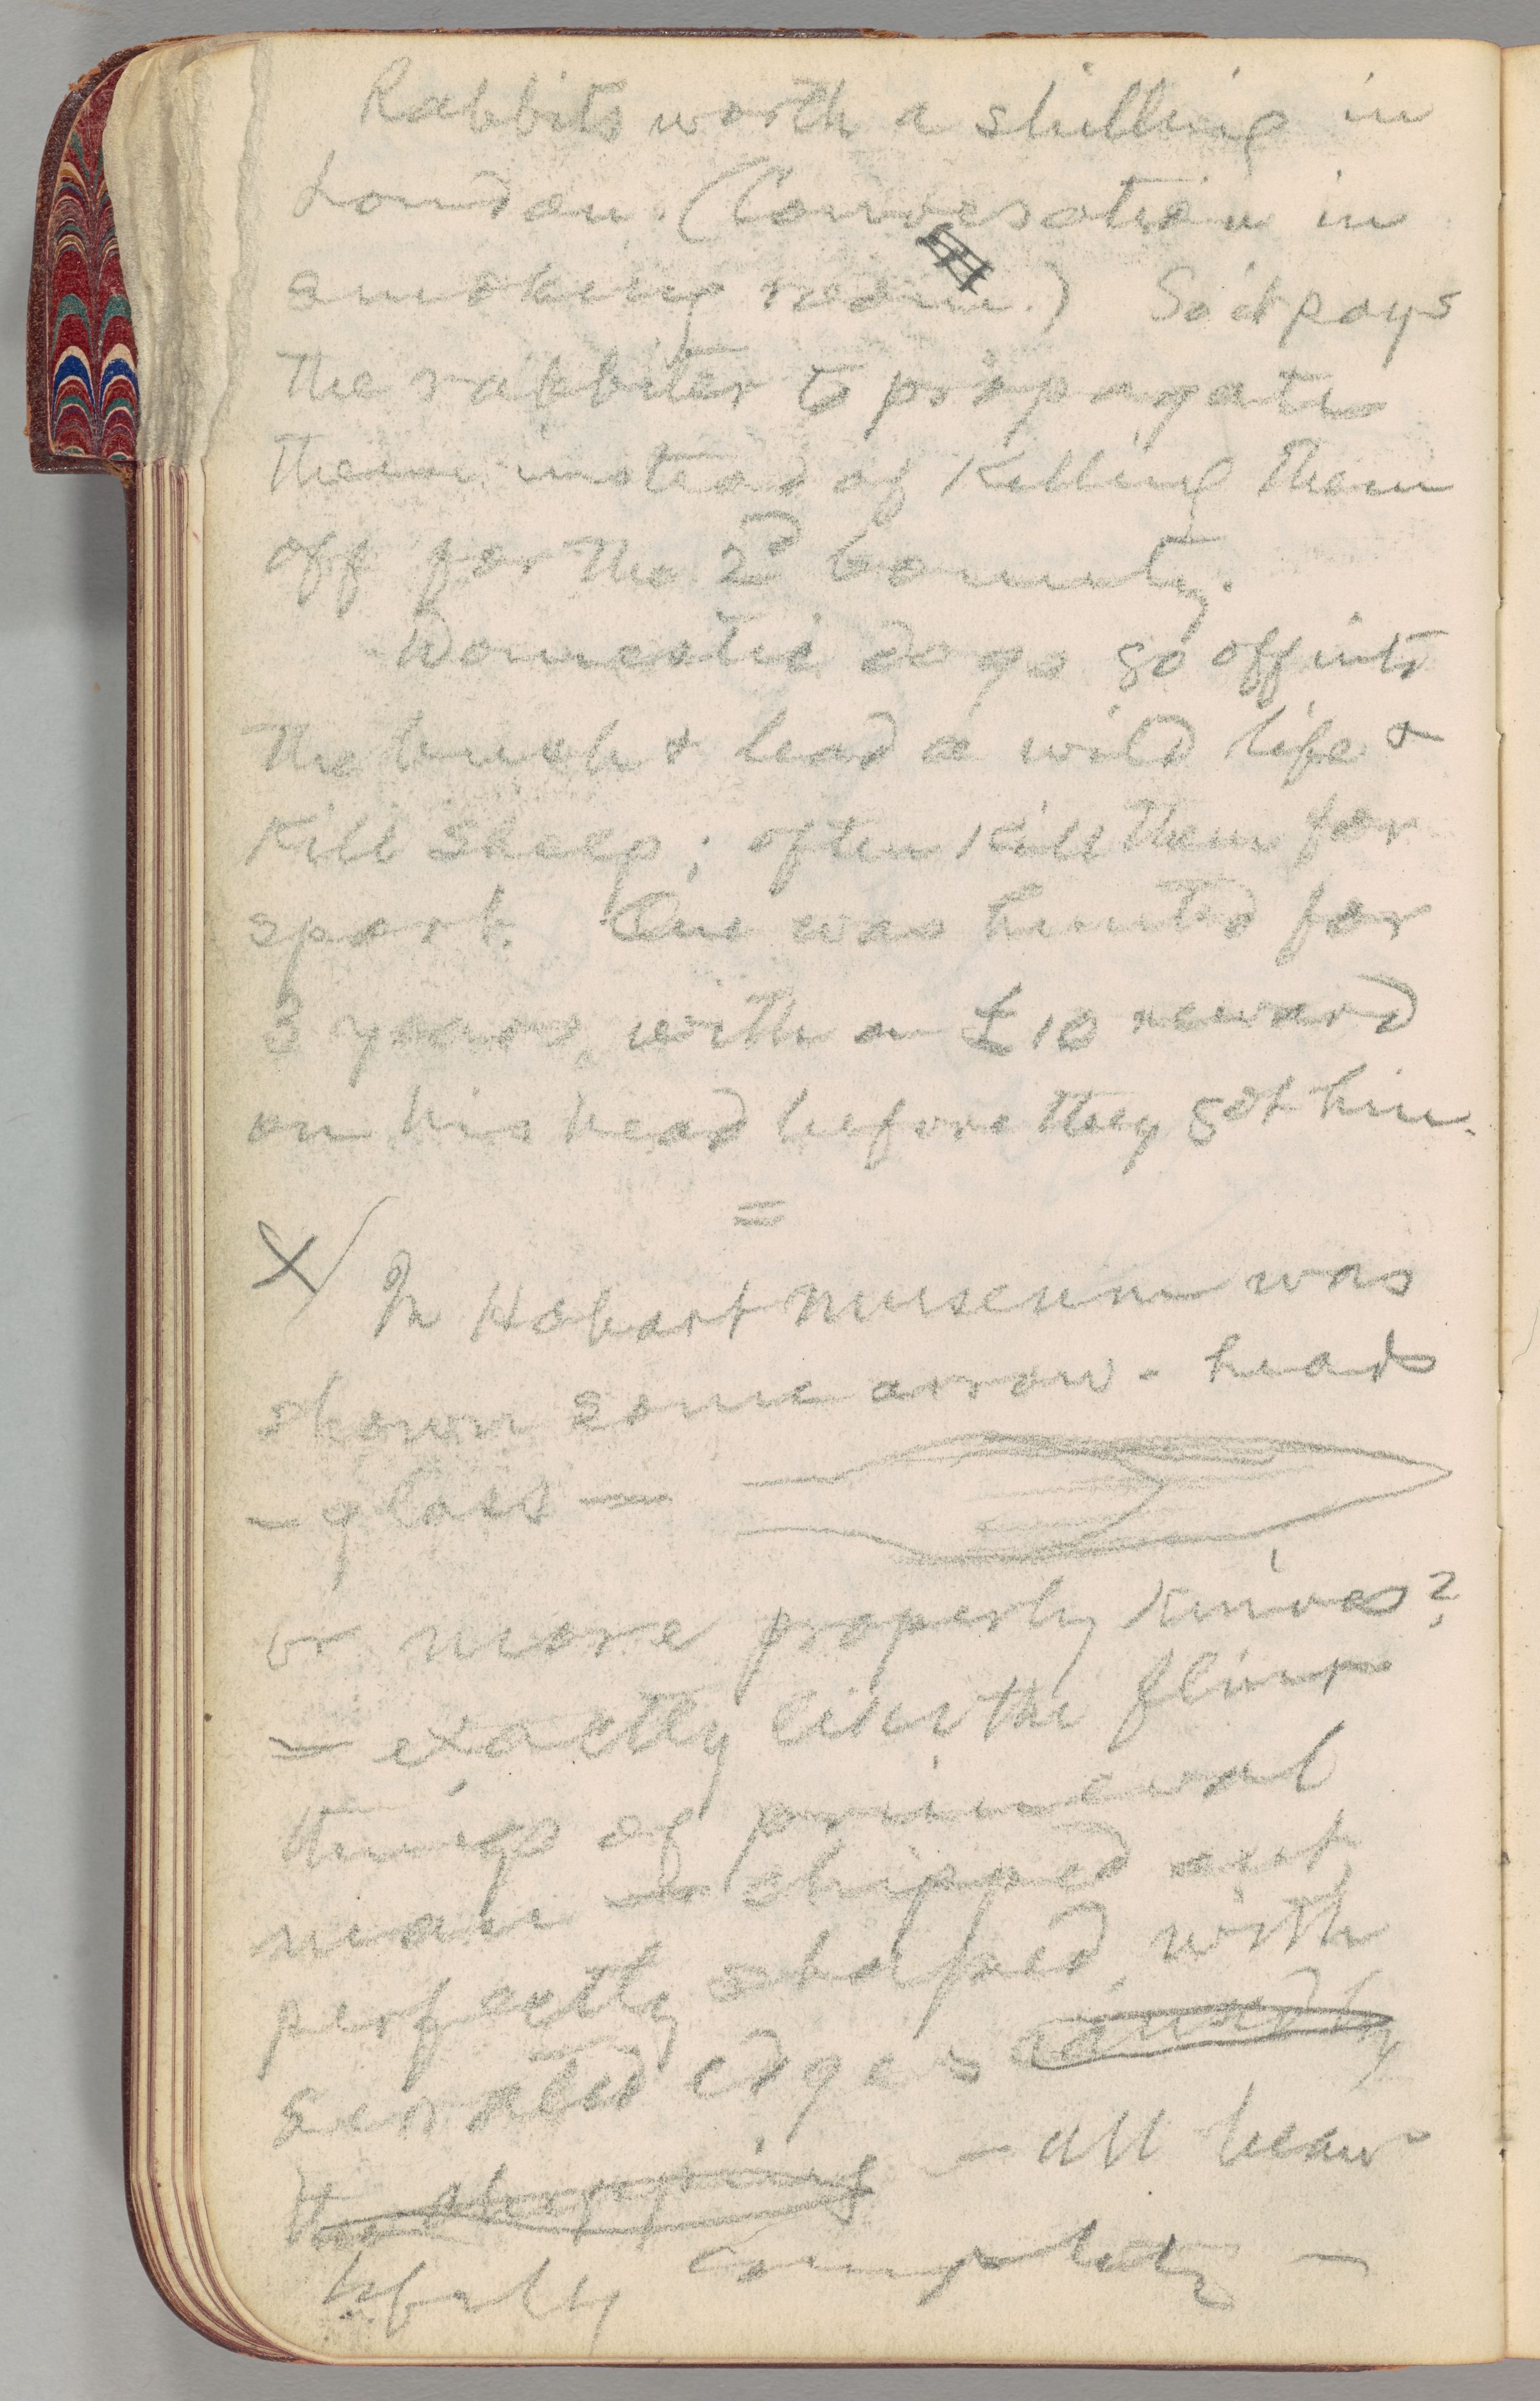 Rabbits worth a shilling in
London. (Conversation in
smoking room.) So it pays
the rabbiter to propagate
them instead of killing them
off for the 2d bounty.
Domestic dogs go off into
the bush & lead a wild life &
kill sheep; often kill them for
sport. One was hunted for
3 years, with a £10 reward
on his head before they got him.
=
X/ In Hobart museum was
shown some arrow-heads
— glass —
or more properly knives?
— exactly like the flint
things of primeval
man — chipped out,
perfectly shaped, with
serrated edges
the chipping — all beau-
tifully complete —